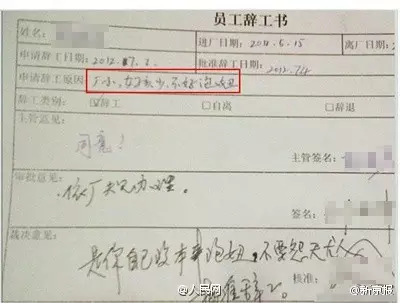 员工辞工书
姓名: 进厂日期: 2011.6.15 离厂日期
申请辞工日期: 2012.7.2. 批准辞工日期: 2012.7.4
申请辞工原因 厂小,女孩少,不好泡妞
辞工类别: 辞工 自离 辞退
主管意见:
同意!
主管签名:
审批意见:
依厂规办理。
签名:
裁决意见:
是你自己没本事泡妞,不要怨天尤人
准辞工
核准:
@人民网
@新京报